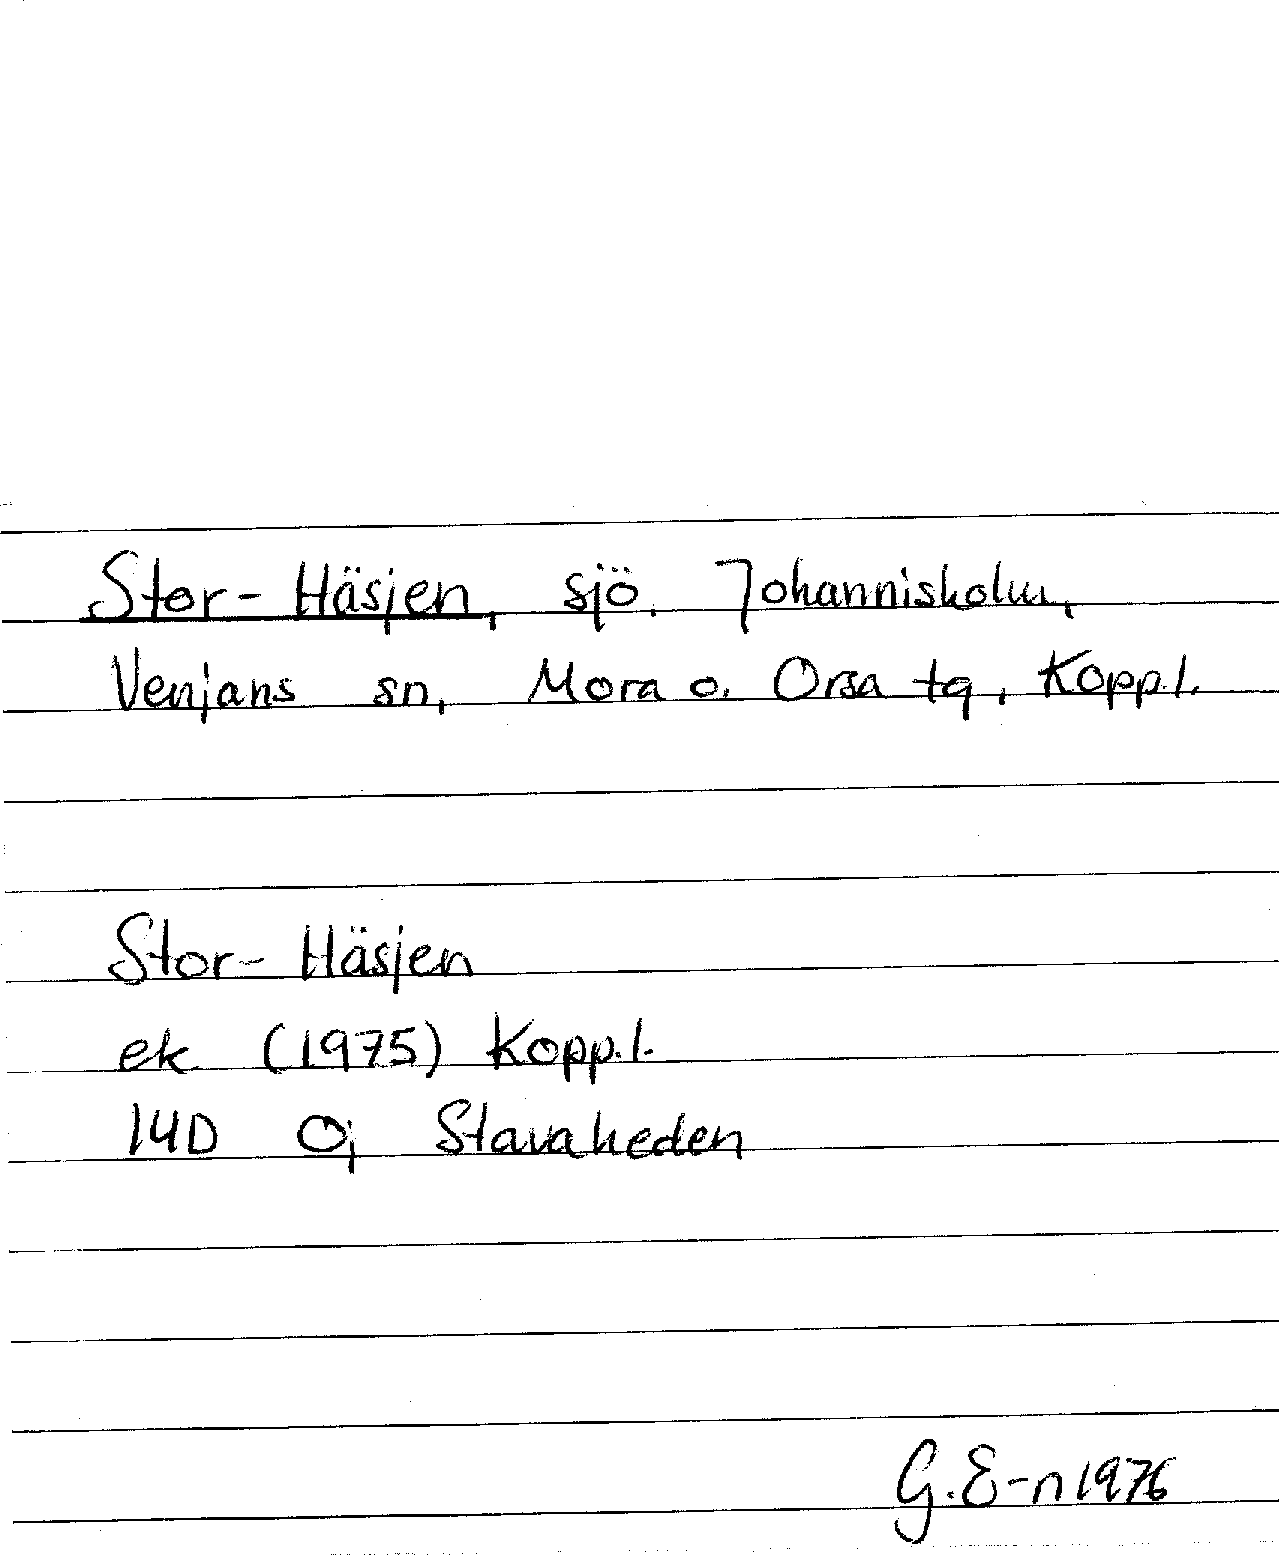 Stor-Häsjen, sjö, Johannisholm,
Venjans sn, Mora o. Orsa tg, Kopp.l.
Stor-Häsjen
ek (1975) Kopp.l.
14D Oj Stavaheden
G.E-n 1976